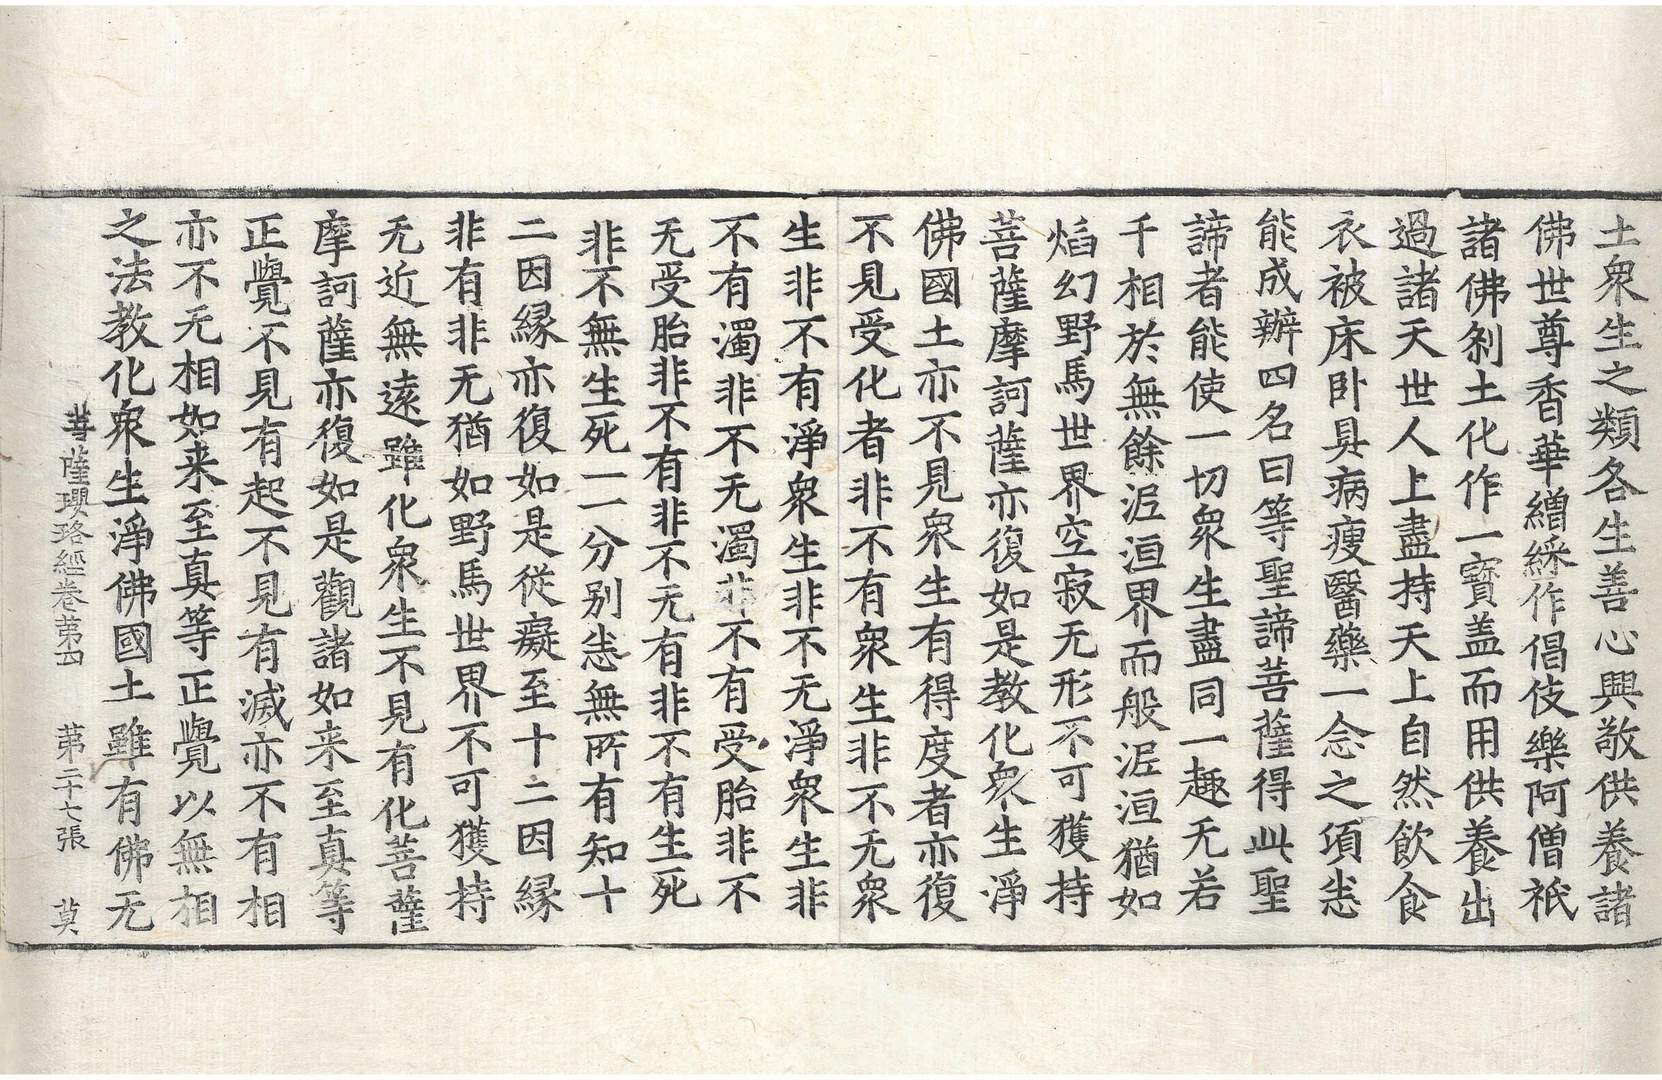 土衆生之類各生善心興敬供養諸
佛世尊香華繒綵作倡伎樂阿僧祇
諸佛剎土化作一寶盖而用供養出
過諸天世人上盡持天上自然飲食
衣被床卧具病瘦醫藥一念之頃恙
能成辦四名曰等聖諦菩薩得此聖
諦者能使一切衆生盡同一趣无若
千相於無餘泥洹界而般泥洹猶如
焰幻野馬世界空寂无形不可獲持
菩薩摩訶薩亦復如是教化衆生淨
佛國土亦不見衆生有得度者亦復
不見受化者非不有衆生非不无衆
生非不有淨衆生非不无淨衆生非
不有濁非不无濁非不有受胎非不
无受胎非不有非不无有非不有生死
非不無生死一一分別恙無所有知十
二因緣亦復如是從癡至十二因緣
非有非无猶如野馬世界不可獲持
无近無遠雖化衆生不見有化菩薩
摩訶薩亦復如是觀諸如来至真等
正覺不見有起不見有滅亦不有相
亦不无相如来至真等正覺以無相
之法教化衆生淨佛國土雖有佛无
菩薩瓔珞經卷苐四 苐二十七張 莫